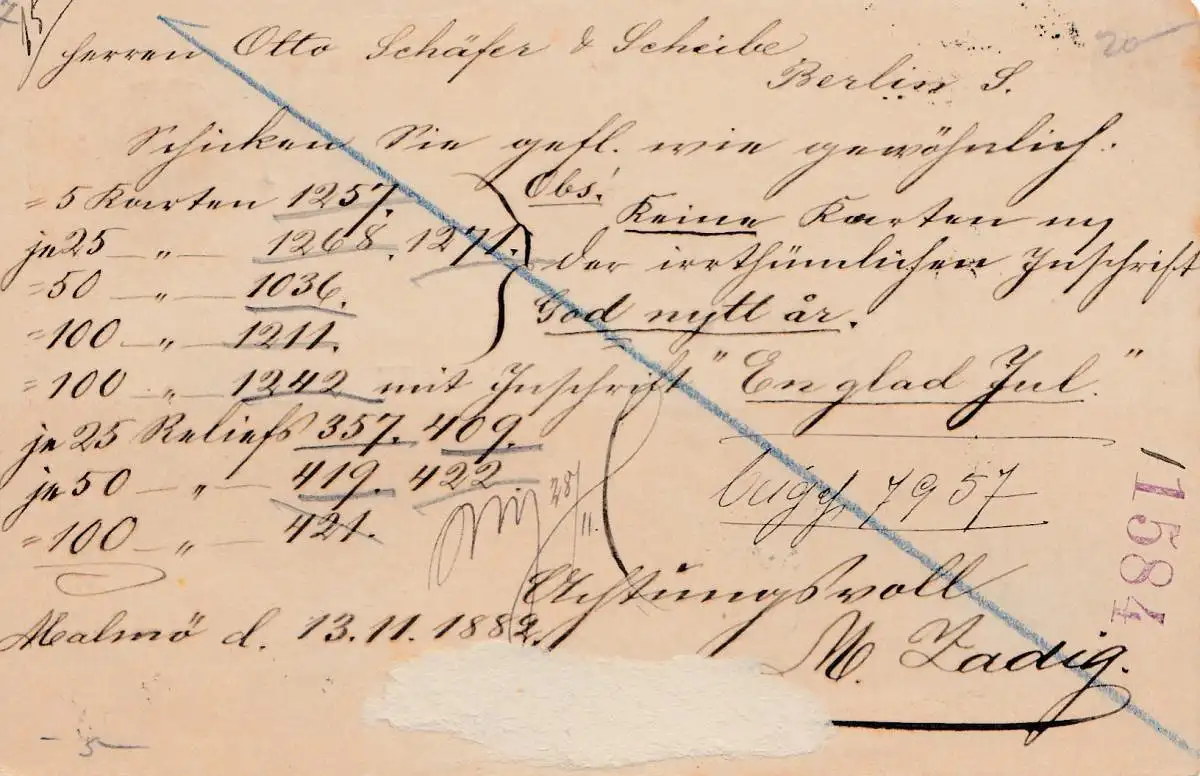 Herren Otto Schäfer & Scheibe
Berlin S.
20
Schicken Sie gefl. wie gewöhnlich.
=5 Karten 1257.
je 25 — „ — 1268. 1271.
=50 — „ — 1036.
=100 — „ — 1211.
Obs!
Keine Karten m
der irrthümlichen Inschrift
God nytt år.
=100 „ 1242 mit Inschrift "En glad Jul."
je 25 Reliefs 357. 409.
je 50 — „ — 419. 422.
=100 — „ — 421.
7957
Achtungsvoll
Malmö d. 13.11.1889.
M. Zadig.
1584